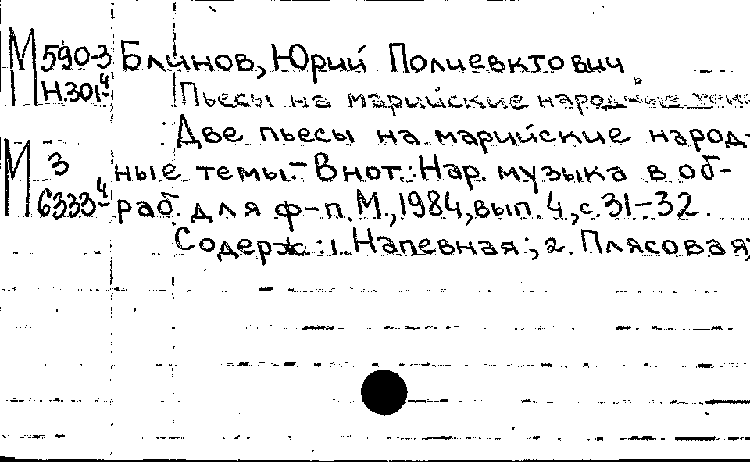 М 590-3 Блинов, Юрий Полиевктович
Н301 4 [Пьесы на марийские народные
Две пьесы на марийские народ-
М 3 ные темы.- В нот.: Нар. музыка в об-
6333 4 раб. для ф-п. М., 1984, вып. 4, с. 31-32.
Содерж.: 1. Напевная; 2. Плясовая;